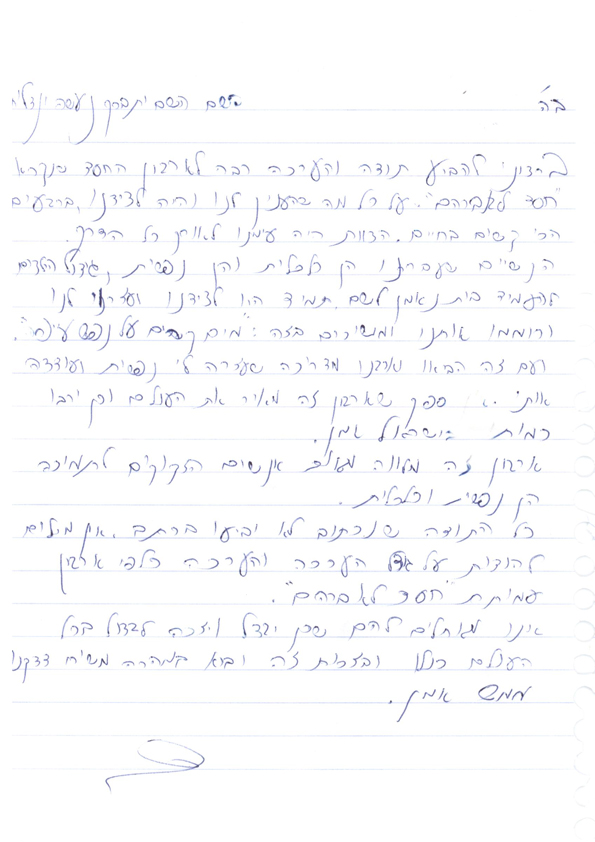 ב"ה בשם השם יתברך נעשה ונצליח
ברצוני להביע תודה והערכה רבה לארגון החסד הנקרא
"חסד לאברהם". על כל מה שהעניק לנו והיה לצידנו, ברגעים
הכי קשים בחיים. הצוות היה עימנו לאורך כל הדרך.
הקשיים שעברנו הן כלכלית והן נפשית, גידול הילדים
להעמיד בית נאמן לשם. תמיד היו לצידנו ועזרו לנו
ורוממו אותנו ומשיבים בזה: "מים קרים על נפש עיפה".
ועם זה הביאו אלינו מדריכה שעזרה לי נפשית ועודדה
אותי. אין ספק שארגון זה מאיר את העולם וכן ירבו
כמותו בישראל אמן.
ארגון זה מלווה אנשים הזקוקים לתמיכה
הן נפשית וכלכלית.
כל התודה שנכתוב לא יביעו ברתב. אין מילים
להודות על גודל הערכה והערכה כלפי ארגון
עמותת "חסד לאברהם".
אנו מאחלים להם שכן יגדל ויזכה לגדול בכל
העולם כולו ובזכות זה יבוא במהרה משיח צדקנו
ממש אמן.